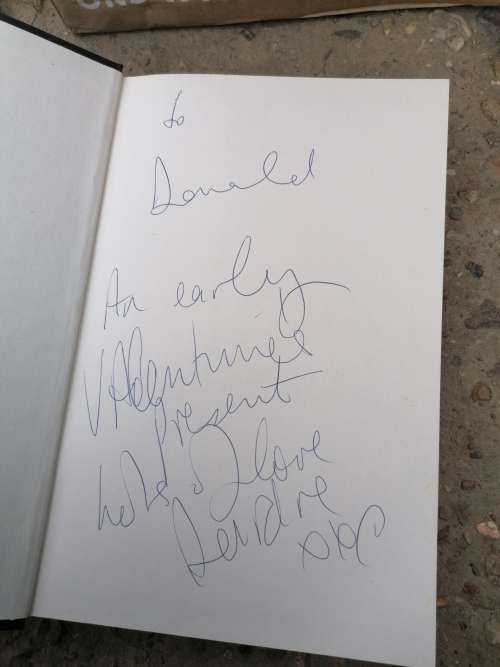 to
Donald
An early
Valentine's
Present
lots of love
Deirdre
xxx